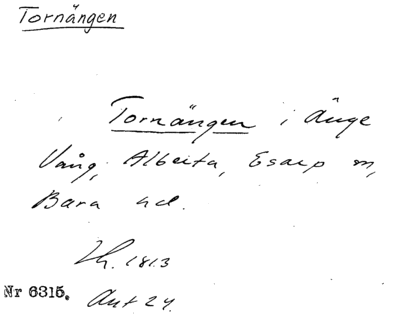 Tornängen
Tornängen i Änge
Vång, Alberta, Esarp m,
Bara hd.
Lh. 1813
Nr 6315. Akt 24.